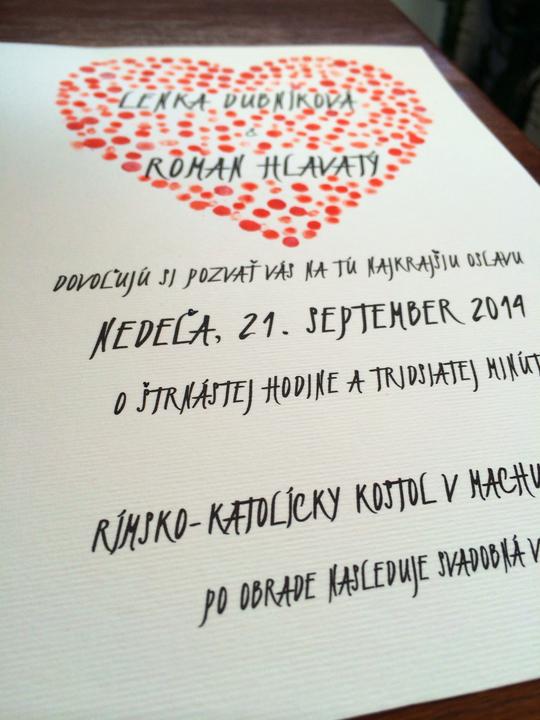 LENKA DUBNÍKOVÁ
&
ROMAN HLAVATÝ
DOVOĽUJÚ SI POZVAŤ VÁS NA TÚ NAJKRAJŠIU OSLAVU
NEDEĽA, 21. SEPTEMBER 2014
O ŠTRNÁSTEJ HODINE A TRIDSIATEJ MINÚT
RÍMSKO-KATOLÍCKY KOSTOL V MACHU
PO OBRADE NASLEDUJE SVADOBNÁ V